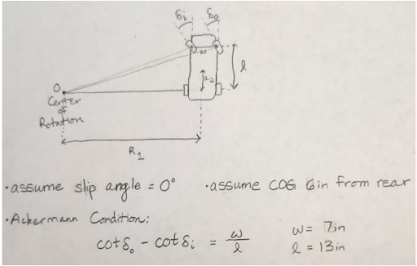 δi δo
w
l
a2
O
Center
of
Rotation
R1
• assume slip angle = 0° • assume COG 6in from rear
• Ackermann Condition:
cot δo - cot δi = w/l
w = 7in
l = 13in